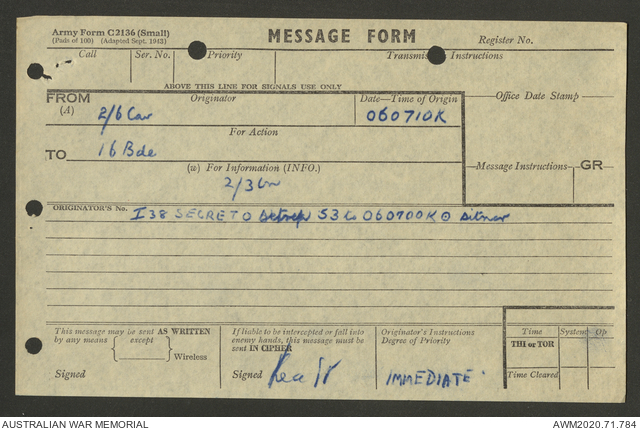 Army Form C2136 (Small)
(Pads of 100) (Adapted Sept. 1943)
MESSAGE FORM
Register No.
Call Ser. No. Priority Transmission Instructions
ABOVE THIS LINE FOR SIGNALS USE ONLY
FROM Originator Date—Time of Origin Office Date Stamp
(A) 2/6 Cav 060710K
For Action
TO 16 Bde
(w) For Information (INFO.) Message Instructions GR
2/3 Bn
ORIGINATOR'S No. I 38 SECRET O sitrep 53 to 060700K O sitnor
This message may be sent AS WRITTEN
by any means except
Wireless
Signed
If liable to be intercepted or fall into
enemy hands, this message must be
sent IN CIPHER
Signed
Originator's Instructions
Degree of Priority
IMMEDIATE
Time System Op
THI or TOR
Time Cleared
AUSTRALIAN WAR MEMORIAL AWM2020.71.784